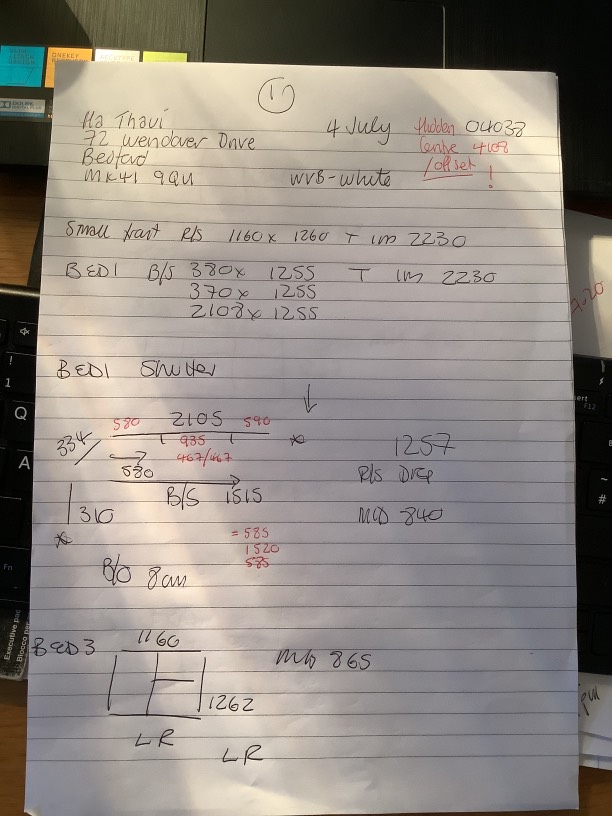 1
Ha Thavi
72 Wendover Drive
Bedford
MK41 9QU
4 July
WVB-White
Hidden 04038
Centre 4108
/offset !
Small front R/S 1160 x 1260 T 1m 2230
BED1 B/S 380 x 1255 T 1m 2230
370 x 1255
2108 x 1255
BED1 Shutter
580 2105 590
334
935
467/467
580
1257
R/S Drop
B/S 1515
310
MID 840
= 585
1520
585
B/O 8cm
BED3 1160
MID 865
1262
LR
LR